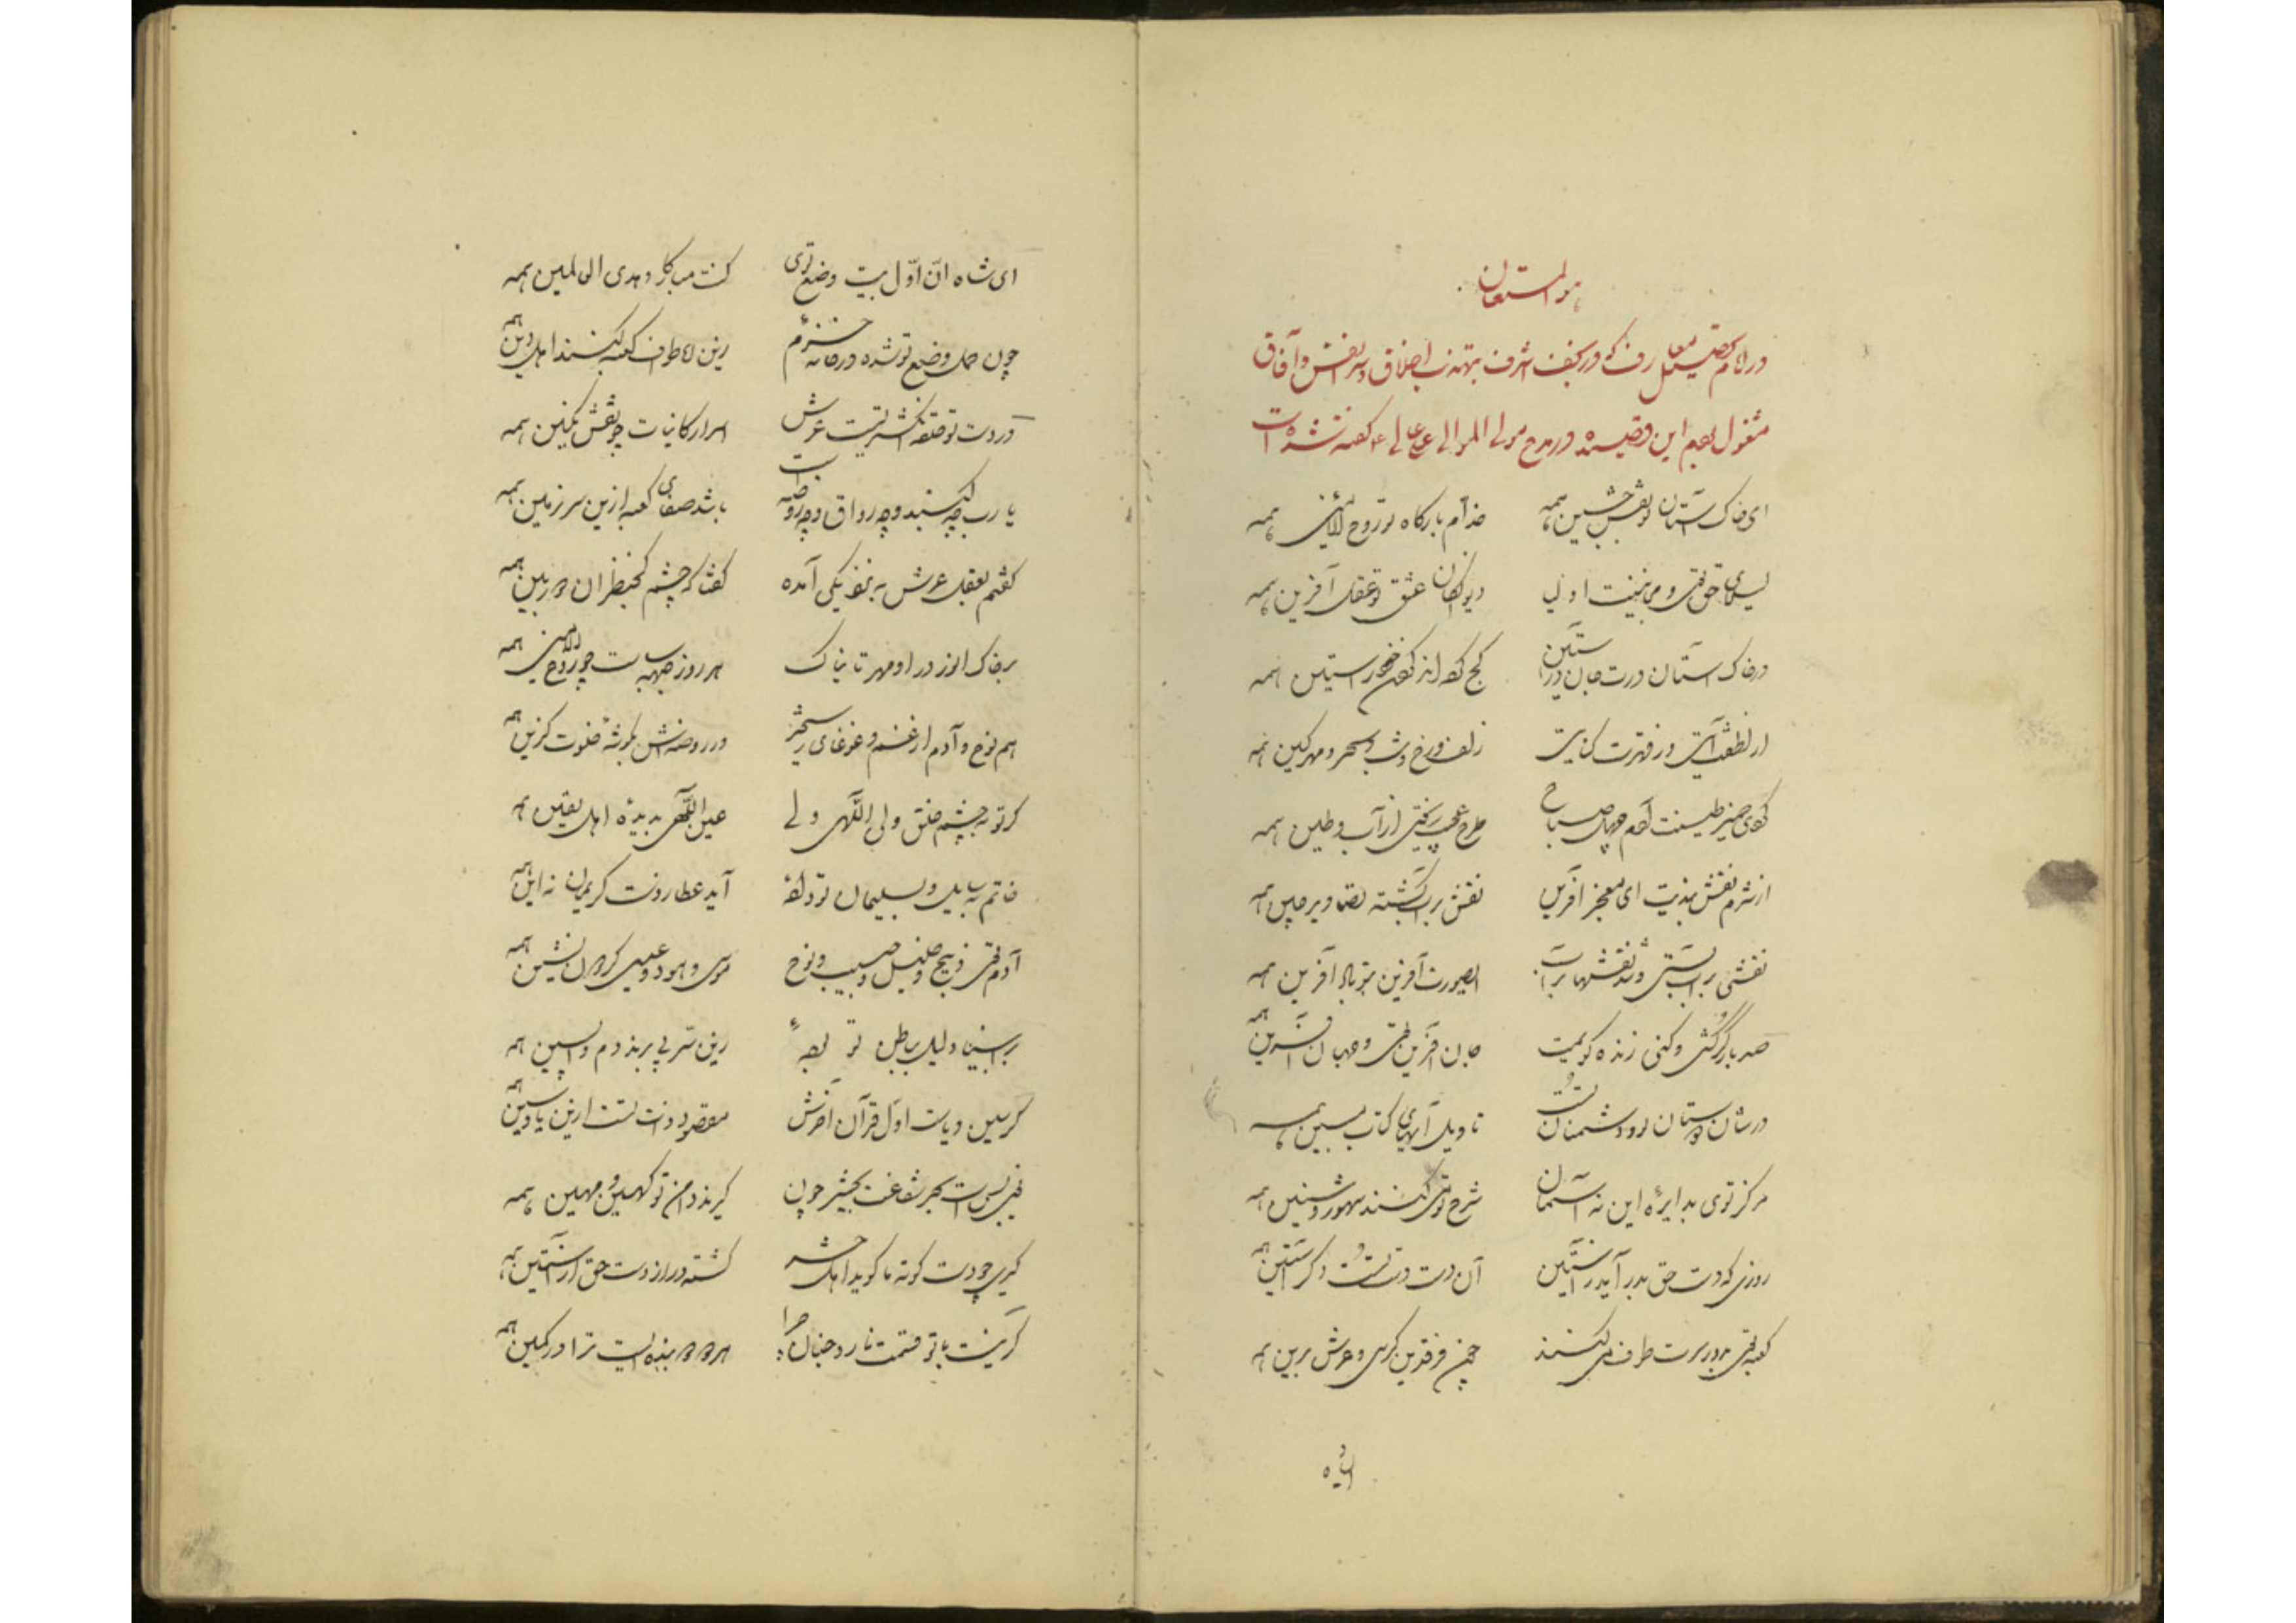 هو المستعان
در ایام تحصیل معارف که در نجف اشرف بتهذیب اخلاق و سیر انفس و آفاق
مشغول بودم این قصیده در مدح مولی الموالی علی عالی ع گفته شده است
ای خاک آستان تو نقش جبین همه خدام بارگاه تو روح الامین همه
لیلای حق توئی و مجانینت اولیا دیوانگان عشق تو عقل آفرین همه
در خاک آستان درت جان در آستین همه
از لطفت آیتی و ز قهرت کنایتی زلف و رخ و شب و سحر و مهر و کین همه
کردی خمیر طینت آدم چهل صباح طرح عجب بریختی از آب و طین همه
از شرم نقش بندیت ای معجز آفرین نقش بر آب گشته تصاویر چین همه
نقشی بر آب بستی و شد نقشها بر آب صورت آفرین بتو باد آفرین همه
صد بار گر کشی و کنی زنده گویمت جان آفرین توئی و جهان آفرین همه
در شان دوستان تو و دشمنان تست تاویل آیهای کتاب مبین همه
مرکز توی بدایره این نه آسمان شرح کنند شهور و سنین همه
روزی که دست حق بدر آید ز آستین آن دست دست تست و دگر آستین همه
کعبه توئی بدور سرت طوف میکنند چون فرقدین کرسی و عرش برین همه
ای شاه
ای شاه ان اول بیت وضع توی کنت مبارکا و هدی العالمین همه
چون حمل و وضع تو شده در خانه زین رو طواف کعبه کنند اهل دین همه
در دست تو حلقه انگشتریست عرش اسرار کاینات چو نقش نگین همه
یا رب چه گنبد و چه رواق و چه روضه است باشد صفای کعبه ازین سرزمین همه
گفتم بعقل عرش به نزدیکی آمده گفتا که چشم نظران دوربین همه
بر خاک انور در او مهر تابناک هر روز جبهه سا ست چو روح الامین همه
هم نوح و آدم از غم و غوغای رستخیز در روضه‌اش بگوشه خلوت گزین همه
گر تو بچشم خلق ولی اللهی ولی عین اللهی بدیده اهل یقین همه
خاتم به سایل و بسلیمان تو آید عطا ز دست کریمان نه این همه
آدم توئی ذبیح و خلیل و حبیب و نوح موسی و هود و عیسی گردون نشین همه
بر انبیا دلیل بباطن تو بوده زین ره پی برند دم واپسین همه
مقصود ذات تست ازین یا و سین همه
بحر شفاعت بحشر چون گیرند دامن تو کهین و مهین همه
گیری چو دست کوته ما گوید اهل حشر گشته دراز دست حق از آستین همه
گر نیست با تو قسمت نار و جنان چرا